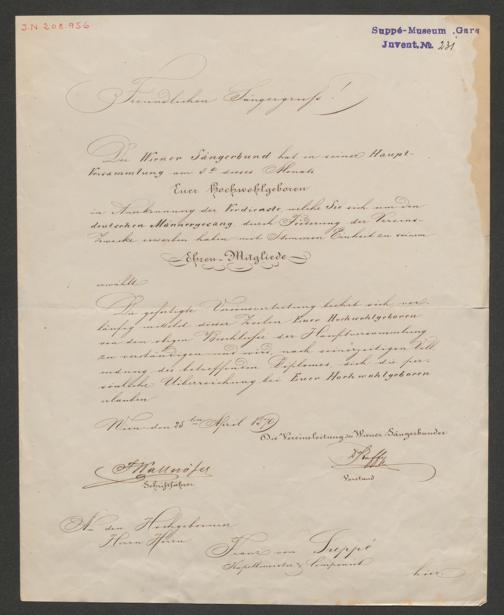 I.N. 208.956
Suppé-Museum, Gars
Juvent. No. 231
Freundlichen Sängergruß!
Der Wiener Sängerbund hat in seiner Haupt-
versammlung am 5t. dieses Monats
Euer Hochwohlgeboren
in Anerkennung der Verdienste, welche Sie sich um den
deutschen Männergesang durch Förderung der Vereins-
zwecke erworben haben mit Stimmen Einheit zu seinem
Ehren-Mitgliede
erwählt.
Die gefertigte Vereinsleitung beehrt sich vor-
läufig mittelst dieser Zeilen Euer Hochwohlgeboren
von dem obigen Beschlusse der Hauptversammlung
zu verständigen und wird, nach seinerzeitigen Voll-
endung des betreffenden Diplomes, sich die per-
sönliche Überreichung bei Euer Hochwohlgeboren
erlauben.
Wien den 25ten April 1870
Die Vereinsleitung des Wiener Sängerbundes
Schriftführer
Vorstand
An den Hochgeborenen
Herrn Herrn
Franz von Suppé
Kapellmeister & Componist
hier.